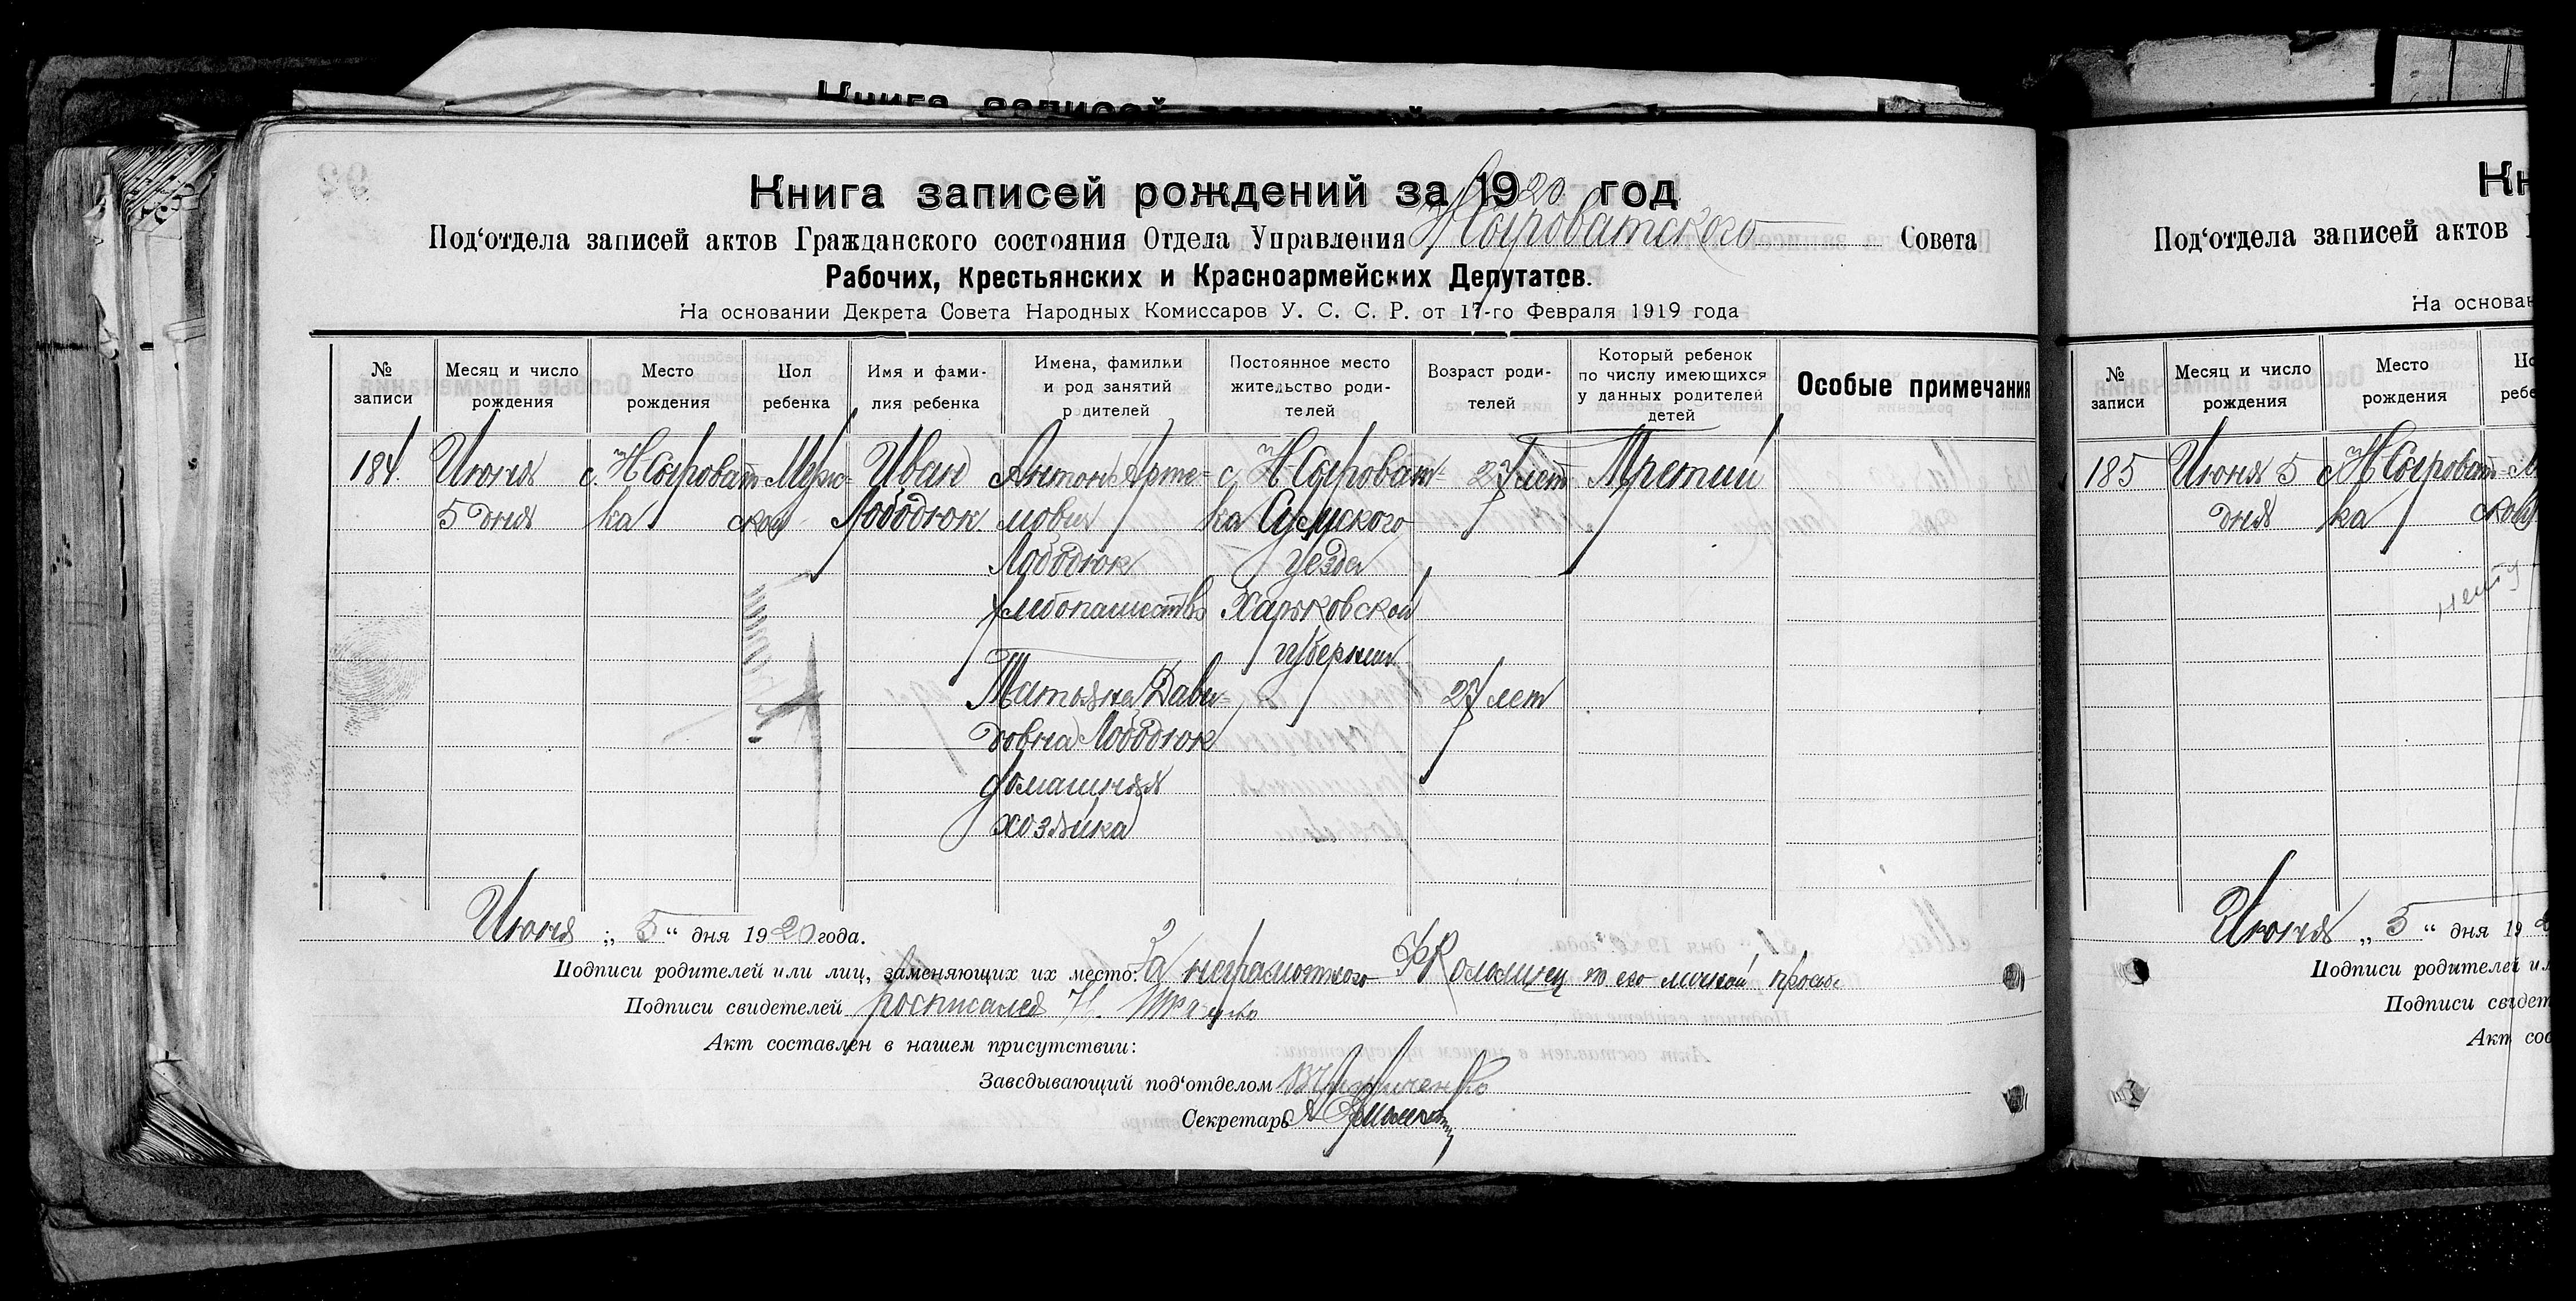 Книга записей
Книга записей рождений за 1920 год
Под‘отдела записей актов Гражданского состояния Отдела Управления Н Сыроватского Совета
Рабочих, Крестьянских и Красноармейских Депутатов.
На основании Декрета Совета Народных Комиссаров У. С. С. Р. от 17-го Февраля 1919 года
№ записи
Месяц и число рождения
Место рождения
Пол ребенка
Имя и фамилия ребенка
Имена, фамилии и род занятий родителей
Постоянное место жительство родителей
Возраст родителей
Который ребенок по числу имеющихся у данных родителей детей
Особые примечания
184. Июня с. Н Сыроват- Муж- Иван Антон Арте- с. Н-Сыроват- 27 лет Третий
5 дня ка ской Лободюк мович ка Сумского
Лободюк уезда
хлебопашество Харьковской
губернии
Татьяна Дави- 27 лет
довна Лободюк
домашняя
хозяйка
Июня „ 5 “ дня 1920 года.
Подписи родителей или лиц, заменяющих их место: За неграмотного его личной
Подписи свидетелей росписался Н.
Акт составлен в нашем присутствии:
Заведывающий под‘отделом
Секретарь
Кн
Под‘отдела записей актов
На основан
№ записи
Месяц и число рождения
Место рождения
По
ребе
185 Июня 5 с Н Сыроват- М
дня ка ског
Июня „ 5 “ дня 19 2
Подписи родителей ил
Подписи свидет
Акт сос